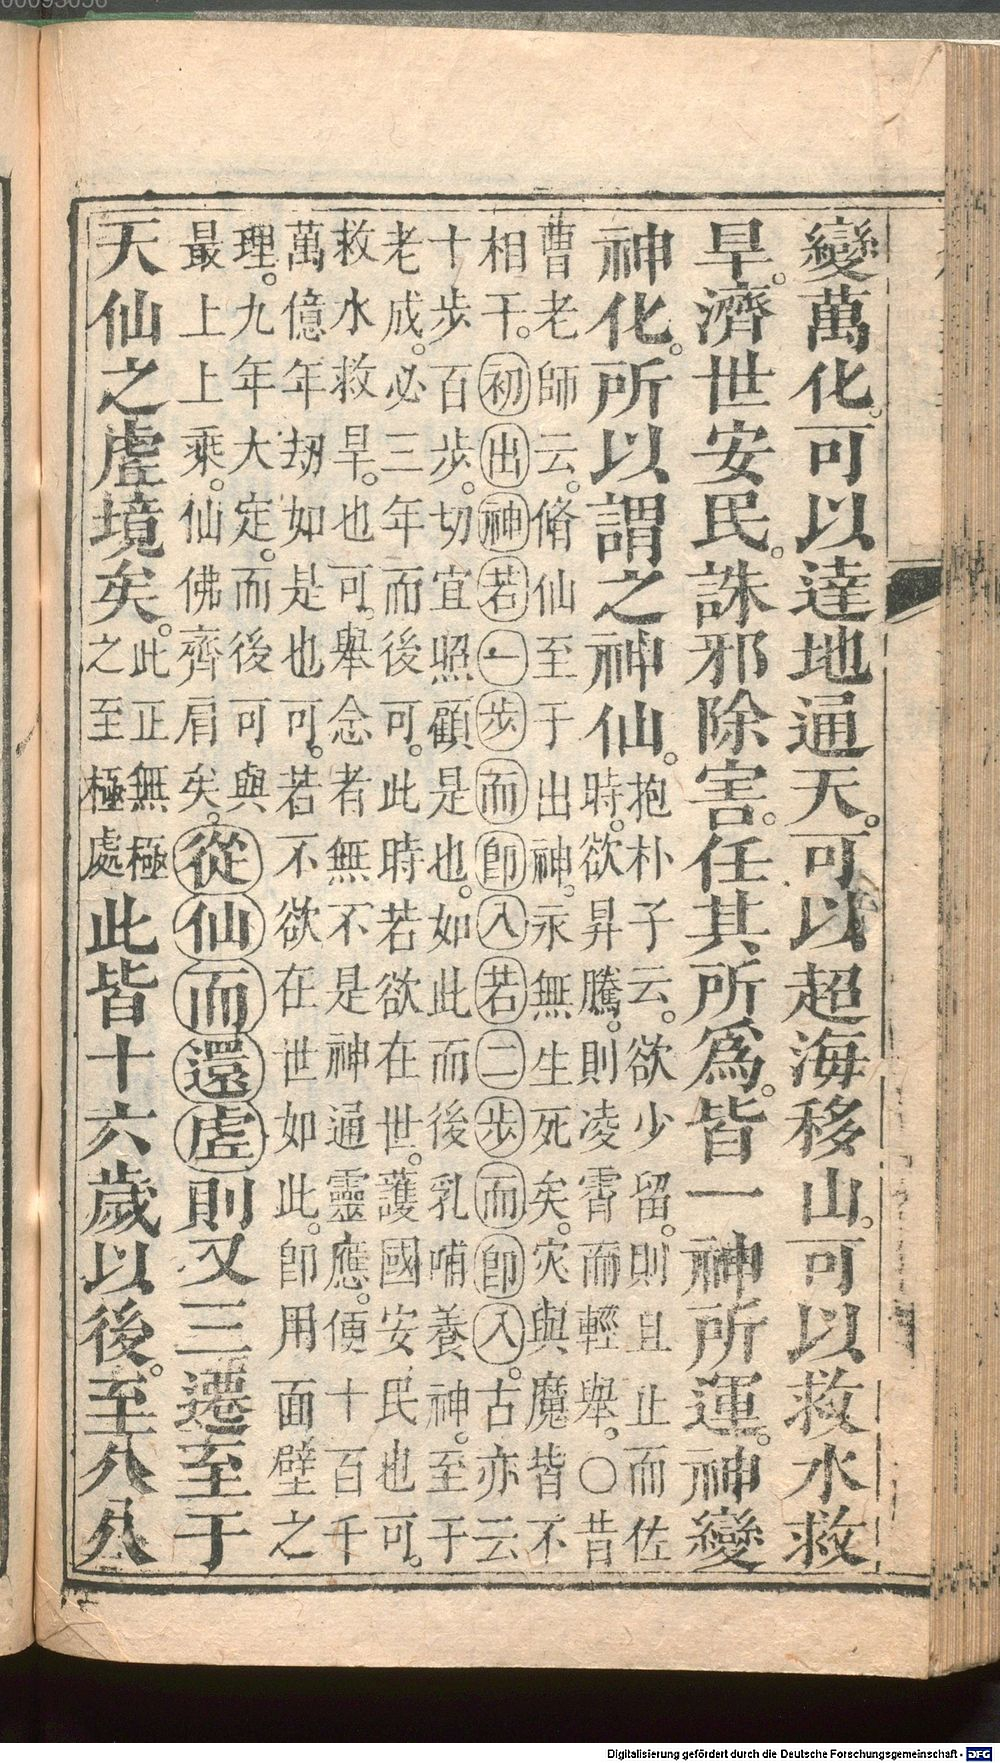 變萬化。可以達地通天。可以超海移山。可以救水救
旱。濟世安民。誅邪除害。任其所爲。皆一神所運。神變
神化。所以謂之神仙。抱朴子云。欲少留。則且止而佐
時。欲昇騰。則凌霄而輕舉。○昔
曹老師云。脩仙至于出神。永無生死矣。灾與魔皆不
相干。初出神若一步而卽入若二步而卽入。古亦云
十步百步。切宜照顧是也。如此而後乳哺養神。至于
老成。必三年而後可。此時若欲在世。護國安民也可。
救水救旱。也可。舉念者無不是神通靈應。便十百千
萬億年劫如是也可。若不欲在世如此。卽用面壁之
理。九年大定。而後可與
最上上乘。仙佛齊肩矣。從仙而還虛則又三遷至于
天仙之虛境矣。此正無極之至極處此皆十六歲以後。至八八
Digitalisierung gefördert durch die Deutsche Forschungsgemeinschaft - DFG